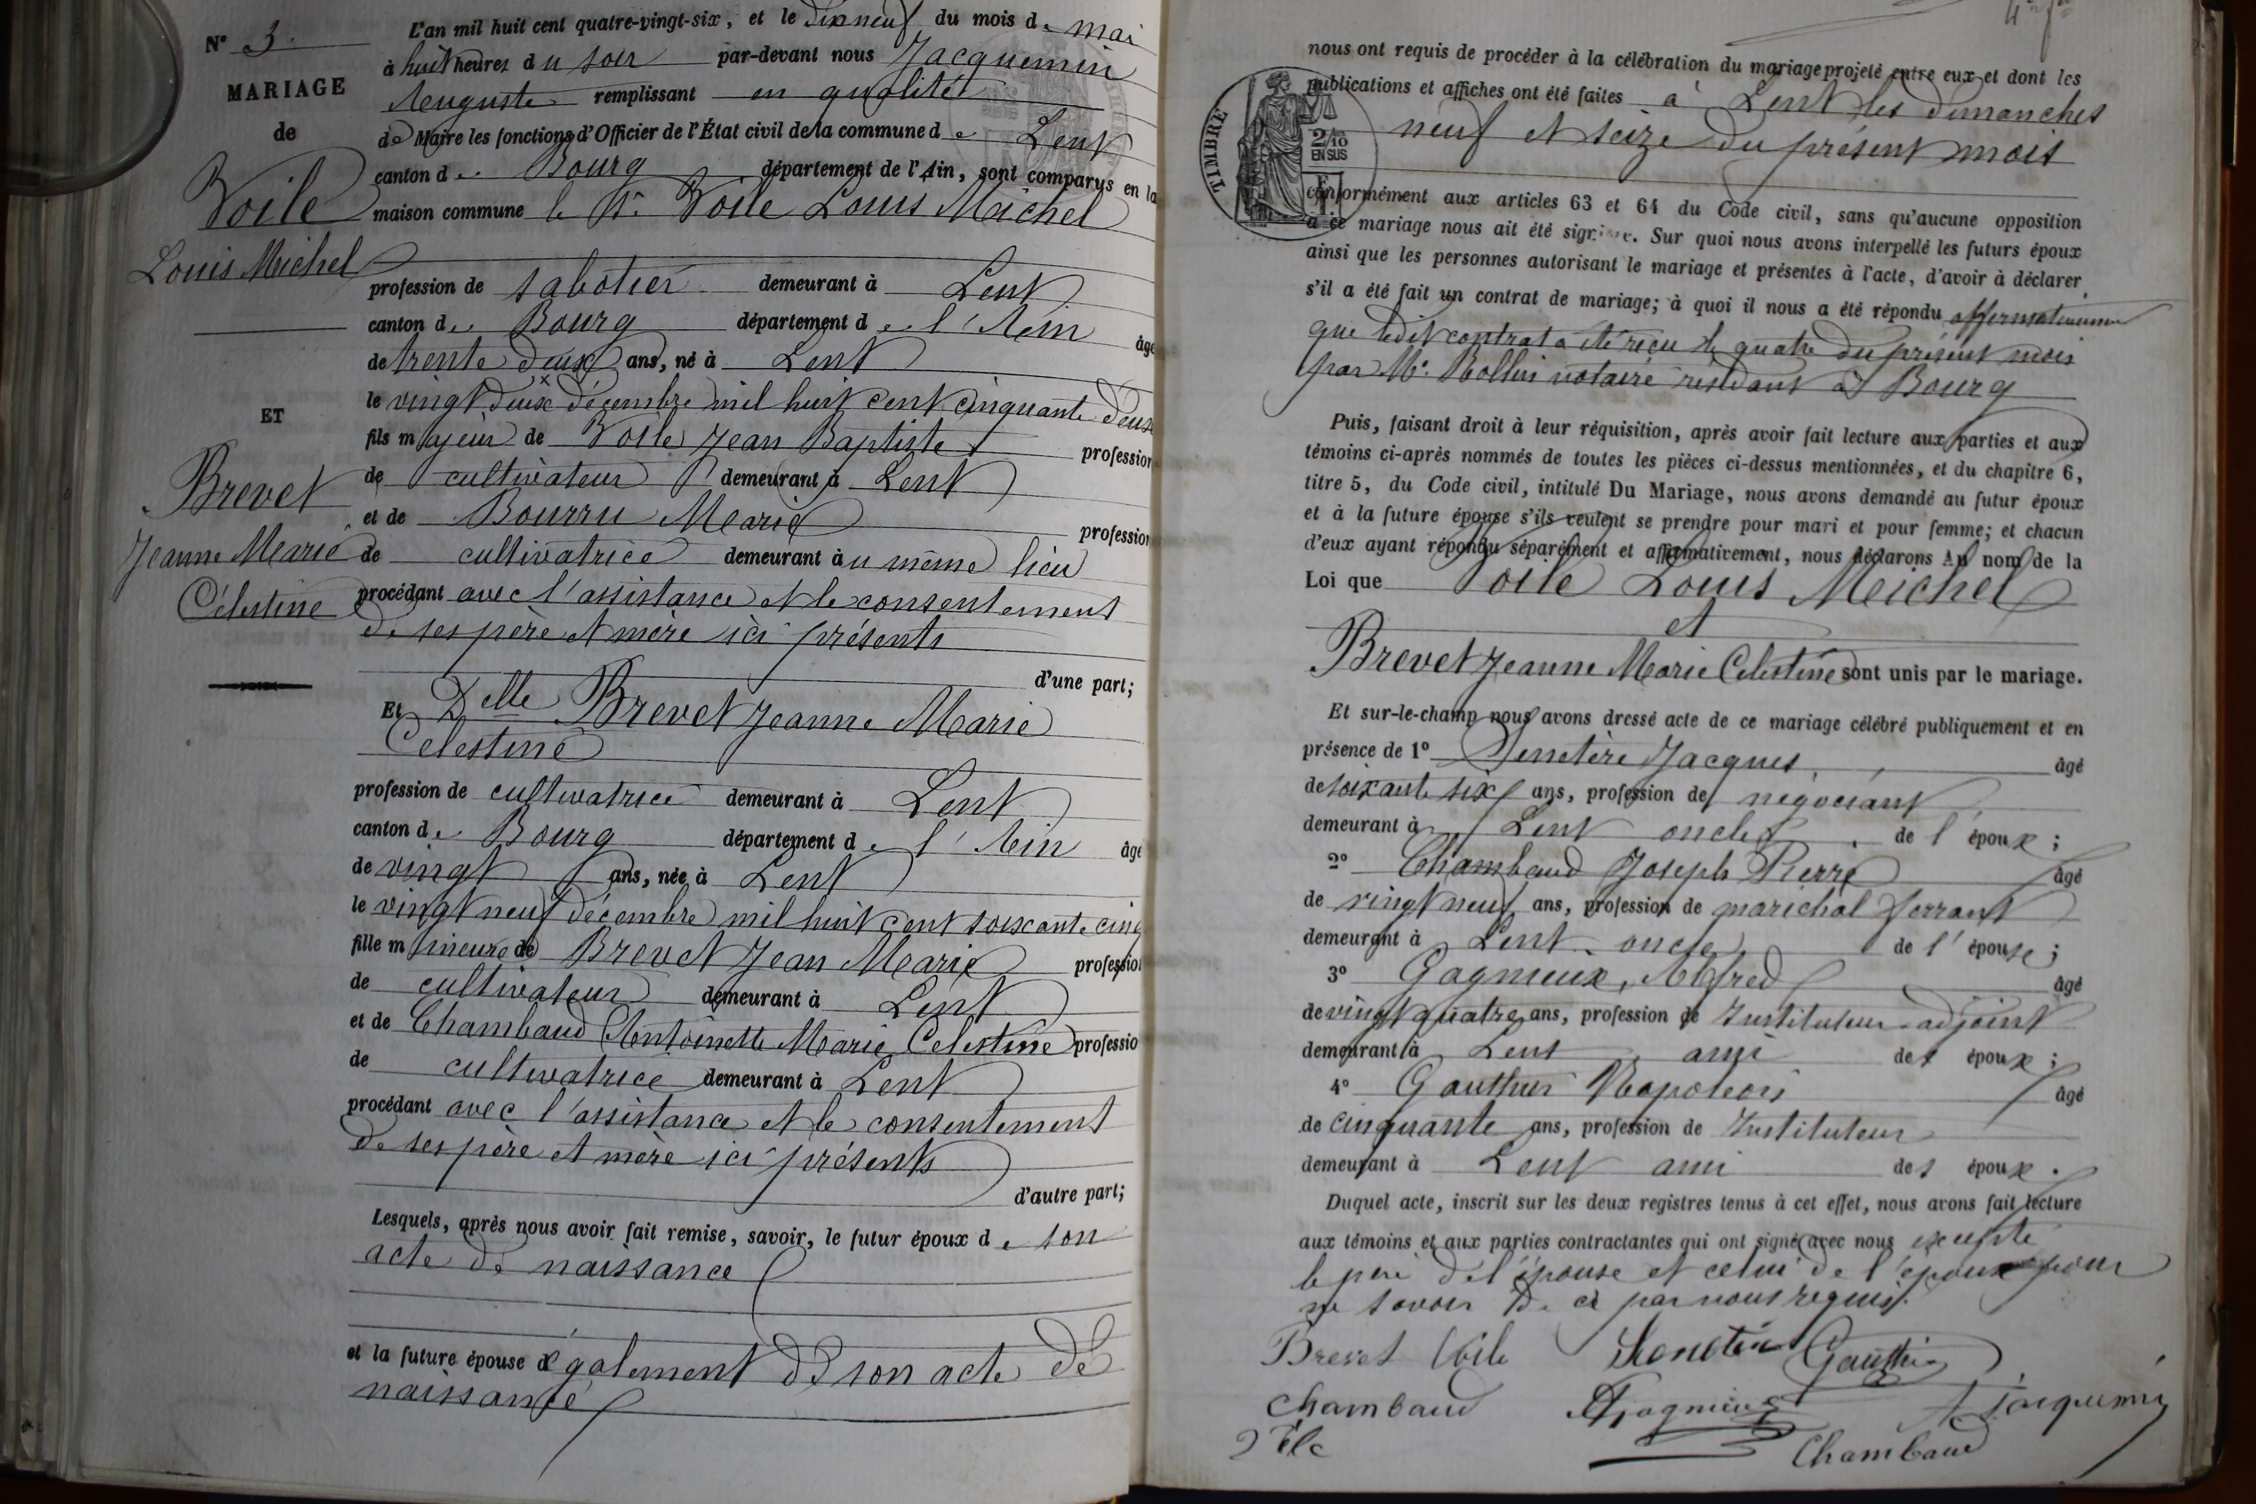 N° 3.
MARIAGE
de
Voile
Louis Michel
ET
Brevet
Jeanne Marie
Célestine
L'an mil huit cent quatre-vingt-six, et le dix neuf du mois de mai
à huit heures du soir par-devant nous Jacquemin
Auguste remplissant en qualité
de Maire les fonctions d'Officier de l'État civil de la commune de Lent
canton de Bourg département de l'Ain, sont comparus en la
maison commune le Sr. Voile Louis Michel
profession de sabotier demeurant à Lent
canton de Bourg département de l'Ain âgé
de trente deux ans, né à Lent
le vingt deux décembre mil huit cent cinquante deux
fils majeur de Voile Jean Baptiste profession
de cultivateur demeurant à Lent
et de Bourru Marie profession
de cultivatrice demeurant au même lieu
procédant avec l'assistance et le consentement
de ses père et mère ici présents
d'une part;
Et Delle Brevet Jeanne Marie
Celestine
profession de cultivatrice demeurant à Lent
canton de Bourg département de l'Ain âgé
de vingt ans, née à Lent
le vingt neuf décembre mil huit cent soixante cinq
fille mineure de Brevet Jean Marie profession
de cultivateur demeurant à Lent
et de Chambaud Antoinette Marie Celestine professio
de cultivatrice demeurant à Lent
procédant avec l'assistance et le consentement
de ses père et mère ici présents
d'autre part;
Lesquels, après nous avoir fait remise, savoir, le futur époux de son
acte de naissance
et la future épouse également de son acte de
naissance
nous ont requis de procéder à la célébration du mariage projeté entre eux et dont les
publications et affiches ont été faites à Lent les dimanches
neuf et seize du présent mois
TIMBRE
2/10
EN SUS
conformément aux articles 63 et 64 du Code civil, sans qu'aucune opposition
à ce mariage nous ait été signifiée. Sur quoi nous avons interpellé les futurs époux
ainsi que les personnes autorisant le mariage et présentes à l'acte, d'avoir à déclarer
s'il a été fait un contrat de mariage; à quoi il nous a été répondu affirmativement
que ledit contrat a été reçu le quatre du présent mois
par Me. Rollin notaire résidant à Bourg
Puis, faisant droit à leur réquisition, après avoir fait lecture aux parties et aux
témoins ci-après nommés de toutes les pièces ci-dessus mentionnées, et du chapitre 6,
titre 5, du Code civil, intitulé Du Mariage, nous avons demandé au futur époux
et à la future épouse s'ils veulent se prendre pour mari et pour femme; et chacun
d'eux ayant répondu séparément et affirmativement, nous déclarons Au nom de la
Loi que Voile Louis Michel
et
Brevet Jeanne Marie Celestine sont unis par le mariage.
Et sur-le-champ nous avons dressé acte de ce mariage célébré publiquement et en
présence de 1° Senetère Jacques, âgé
de soixante six ans, profession de négociant
demeurant à Lent oncle de l'époux;
2° Chambaud Joseph Pierre âgé
de vingt neuf ans, profession de maréchal ferrant
demeurant à Lent oncle de l'épouse;
3° Gagnieux, Alfred âgé
de vingt quatre ans, profession de Instituteur-adjoint
demeurant à Lent, ami des époux;
4° Gauthier Napoléon âgé
de cinquante ans, profession de Instituteur
demeurant à Lent ami des époux.
Duquel acte, inscrit sur les deux registres tenus à cet effet, nous avons fait lecture
aux témoins et aux parties contractantes qui ont signé avec nous excepté
le père de l'épouse et celui de l'époux pour
ne savoir de ce par nous requis.
Brevet Voile Senetère Gauthier
Chambaud AGagnieux A Jacquemin
Chambaud